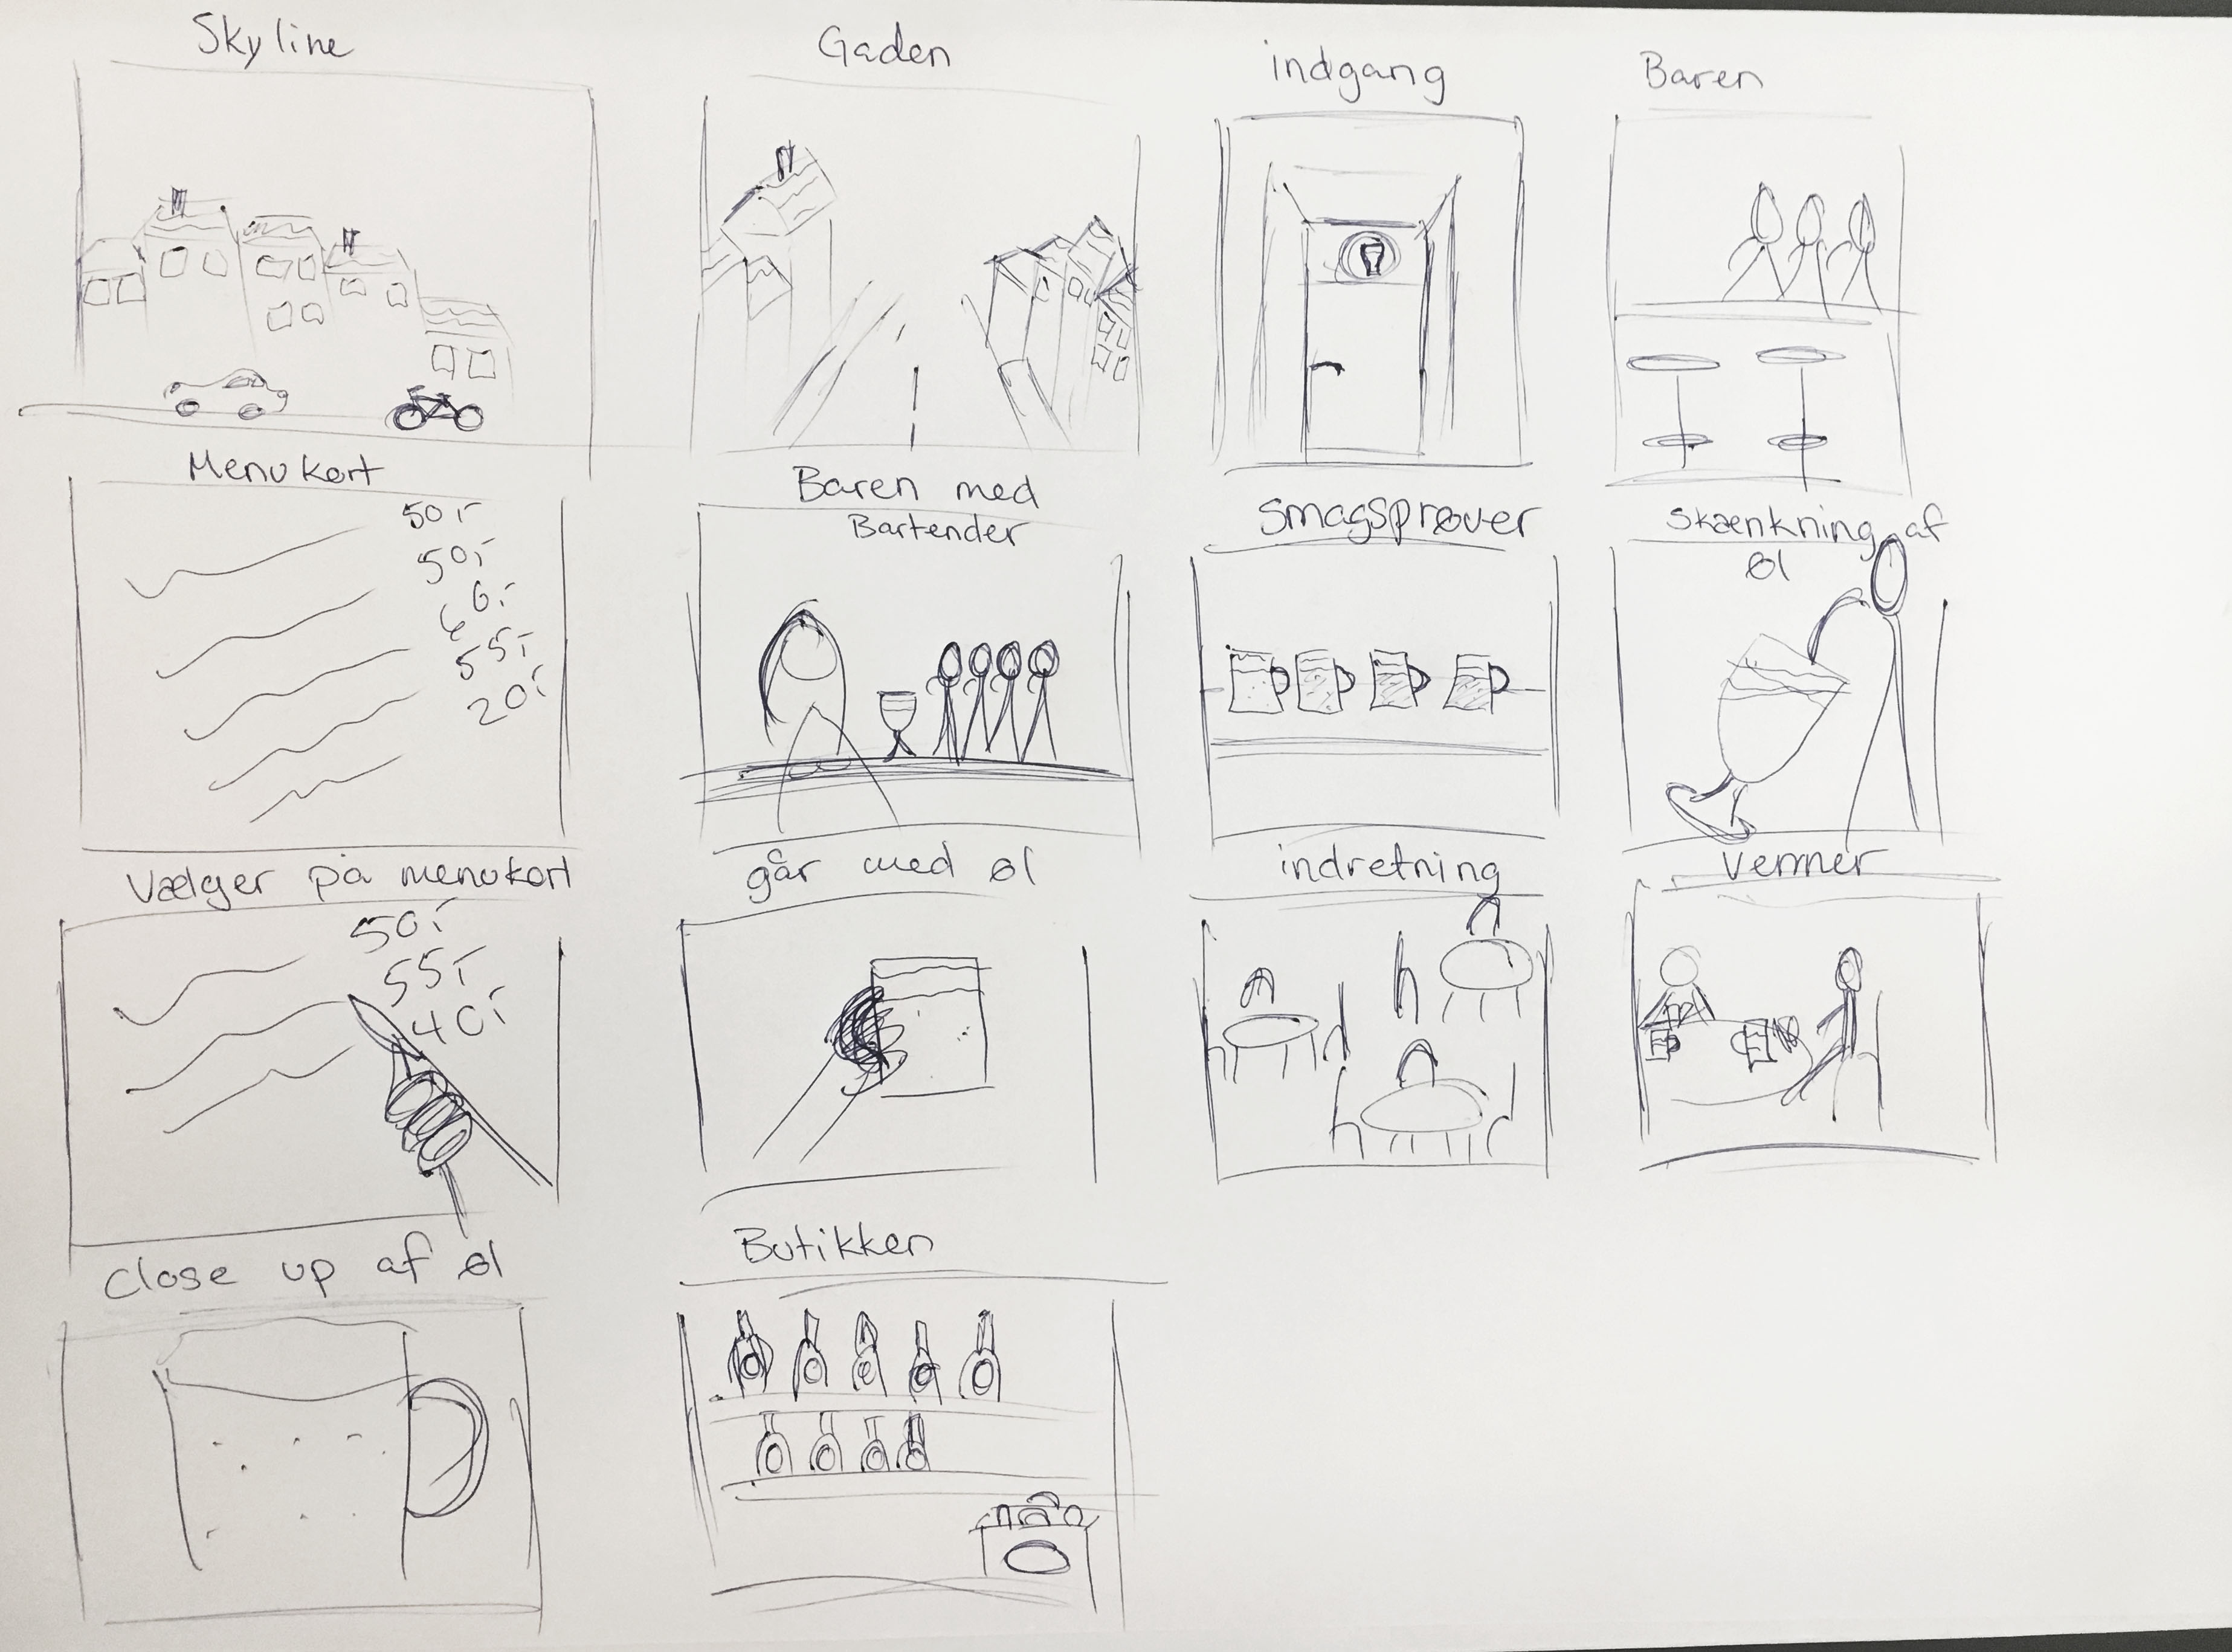 Skyline
Gaden
indgang
Baren
Menukort
50,-
50,-
60,-
55,-
20,-
Baren med
Bartender
Smagsprøver
Skænkning af
øl
Vælger på menukort
50,-
55,-
40,-
går med øl
indretning
Venner
Close up af øl
Butikken